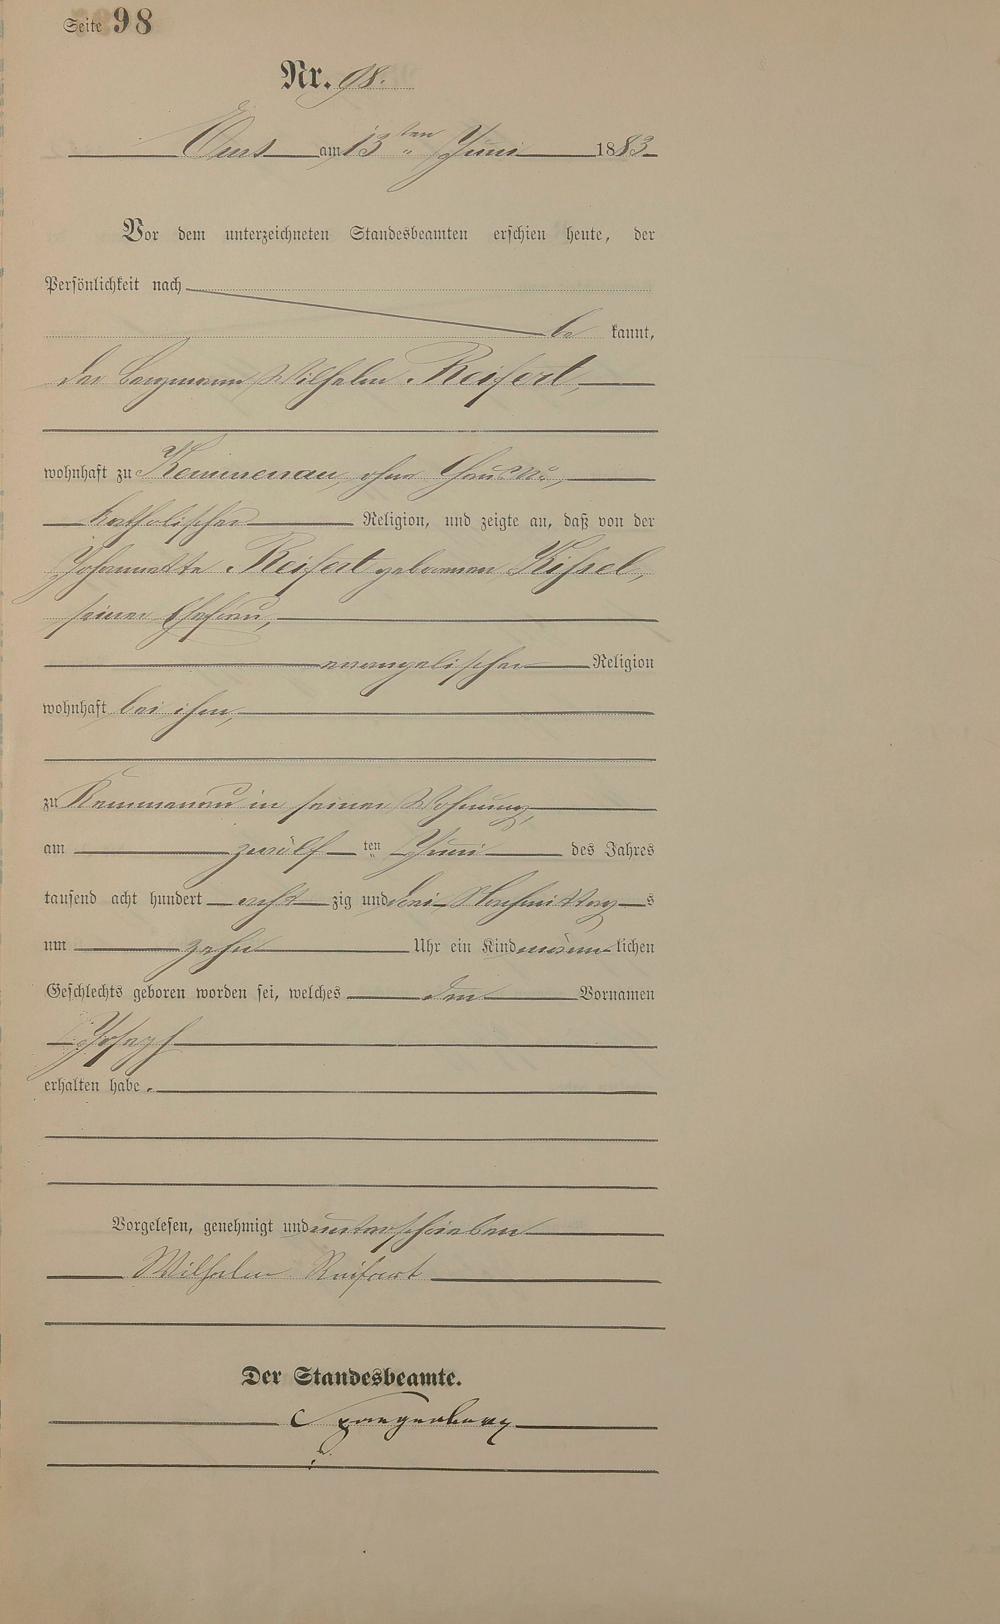 Seite 98
Nr. 98.
Ems am 13ten Juni 1883
Vor dem unterzeichneten Standesbeamten erschien heute, der
Persönlichkeit nach
be kannt,
der Bergmann Wilhelm Reifert,
wohnhaft zu Kemmenau, ohne Haus No,
katholischer Religion, und zeigte an, daß von der
Johannette Reifert geborenen Kissel,
seiner Ehefrau,
evangelischer Religion
wohnhaft bei ihm,
zu Kemmenau in seiner Wohnung,
am zwölf ten Juni des Jahres
tausend acht hundert acht zig und drei Nachmittag s
um zehn Uhr ein Kind männ lichen
Geschlechts geboren worden sei, welches den Vornamen
Joseph
erhalten habe.
Vorgelesen, genehmigt und unterschrieben
Wilhelm Reifert
Der Standesbeamte.
Spangenberg